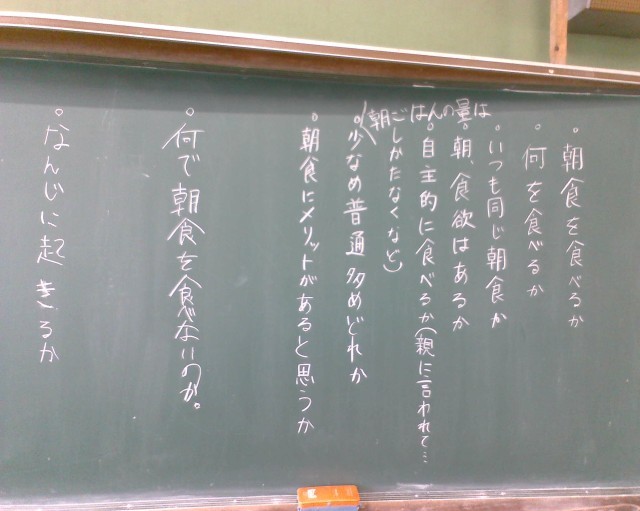 。朝食を食べるか
。何を食べるか
。いつも同じ朝食か
。朝、食欲はあるか
。自主的に食べるか(親に言われて…
しかたなくなど)
朝ごはんの量は
。少なめ普通多めどれか
。朝食にメリットがあると思うか
。何で朝食を食べないのか。
。なんじに起きるか